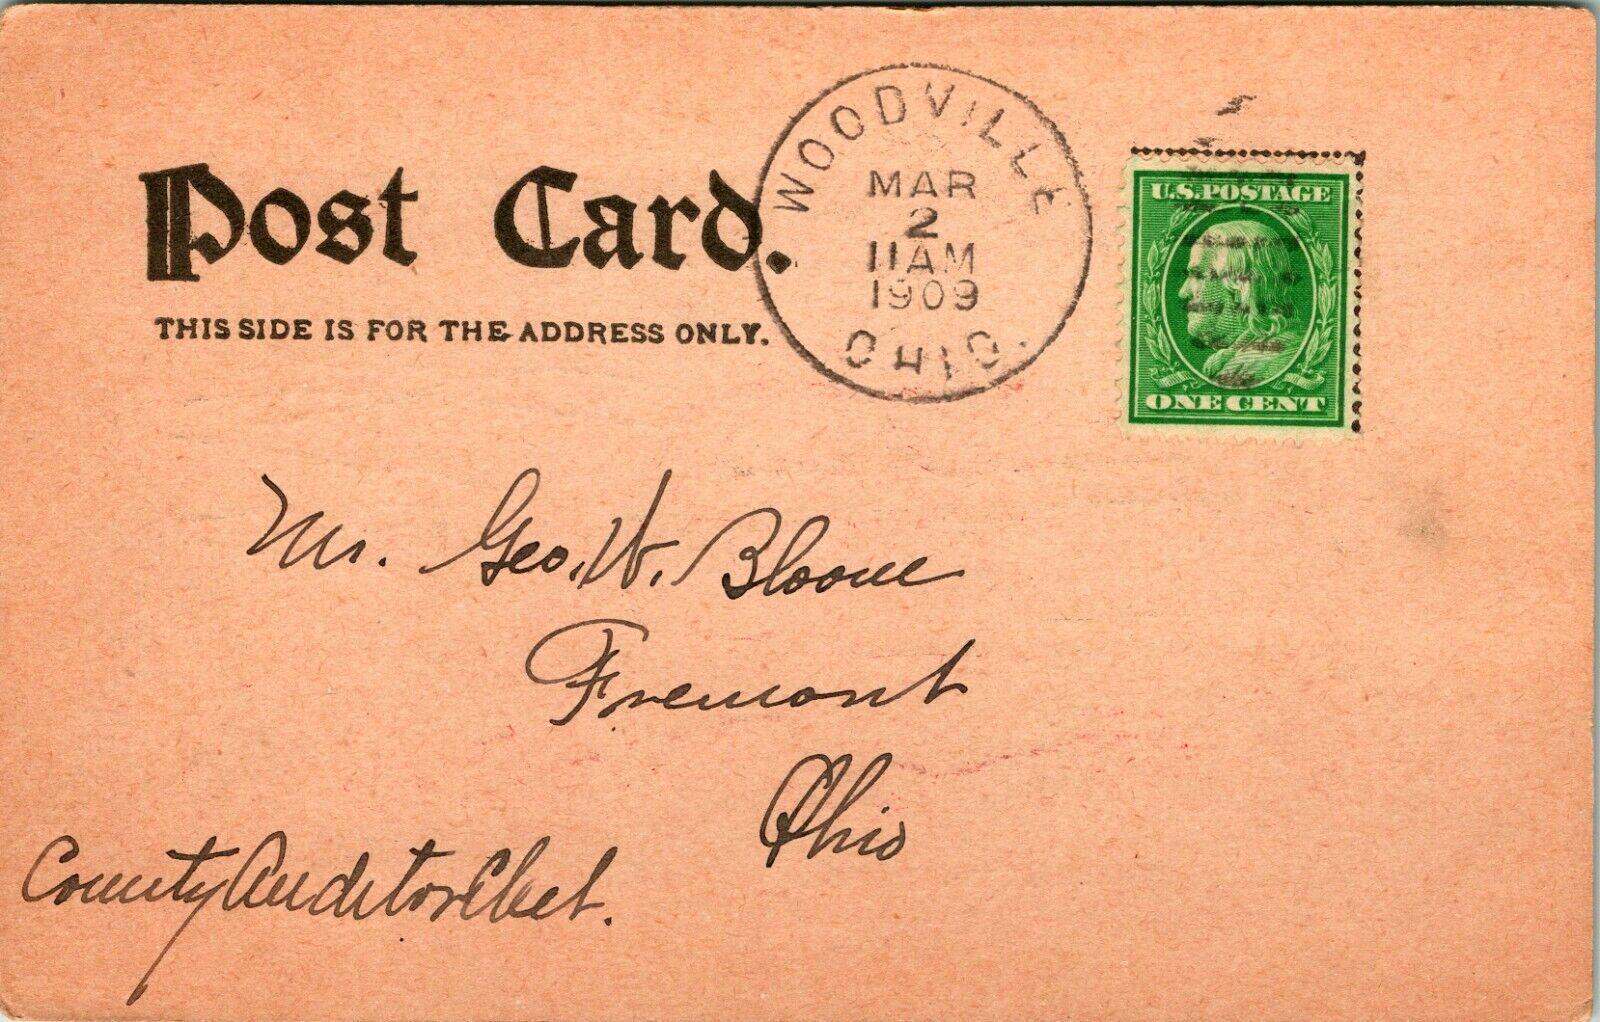 Post Card.
THIS SIDE IS FOR THE ADDRESS ONLY.
WOODVILLE
MAR
2
11 AM
1909
OHIO.
U.S. POSTAGE
ONE CENT
Mr. Geo. W. Bloom
Fremont
Ohio
County Auditor Elect.